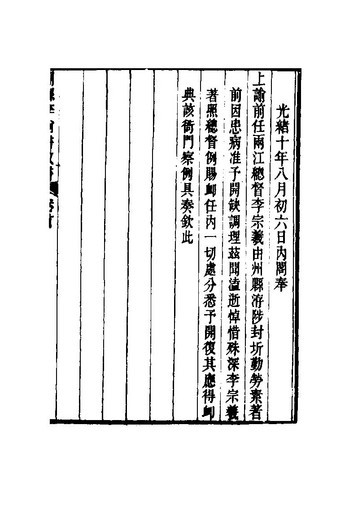 光緒十年八月初六日內閣奉
上諭前任兩江總督李宗羲由州縣洊陟封圻勤勞素著
前因患病准予開缺調理茲聞溘逝悼惜殊深李宗羲
著照總督例賜卹任內一切處分悉予開復其應得卹
典該衙門察例具奏欽此